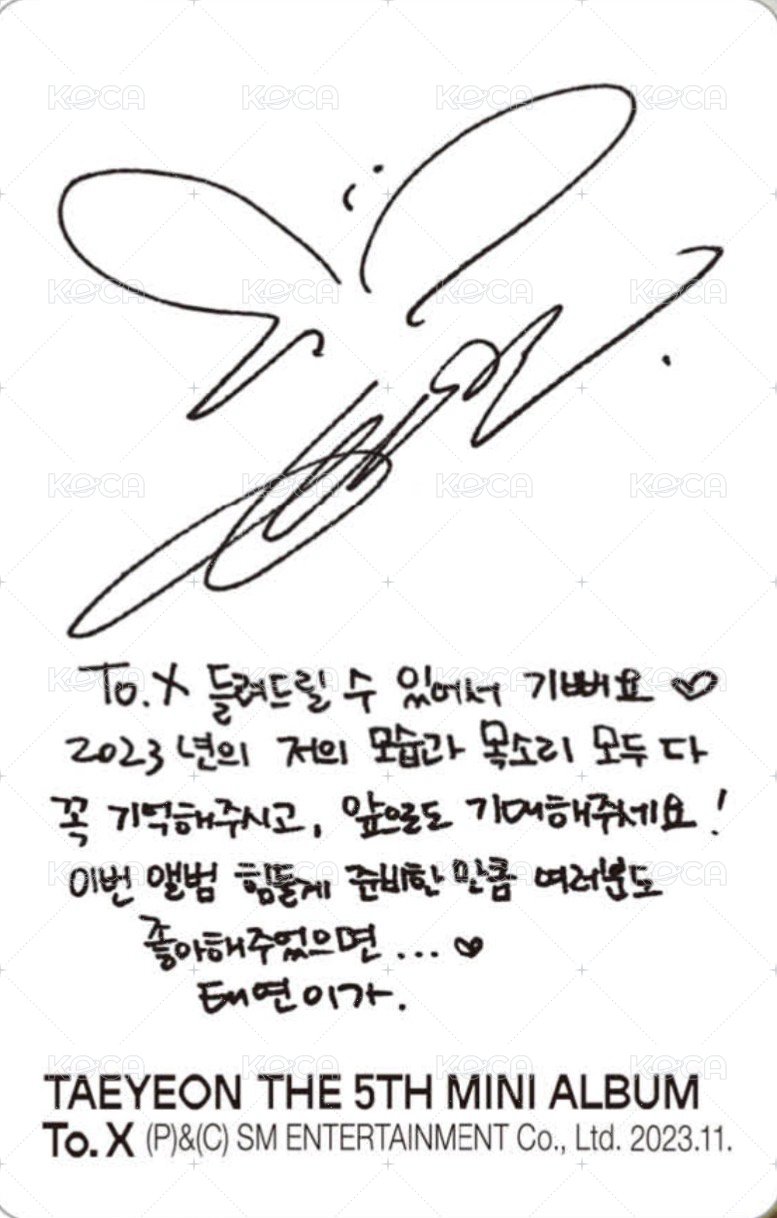 To.X 들려드릴 수 있어서 기뻐요 ♡
2023년의 저의 모습과 목소리 모두 다
꼭 기억해주시고, 앞으로도 기대해주세요!
이번 앨범 힘들게 준비한 만큼 여러분도
좋아해주었으면 ... ♡
태연이가.
TAEYEON THE 5TH MINI ALBUM
To. X (P)&(C) SM ENTERTAINMENT Co., Ltd. 2023.11.
KOCA